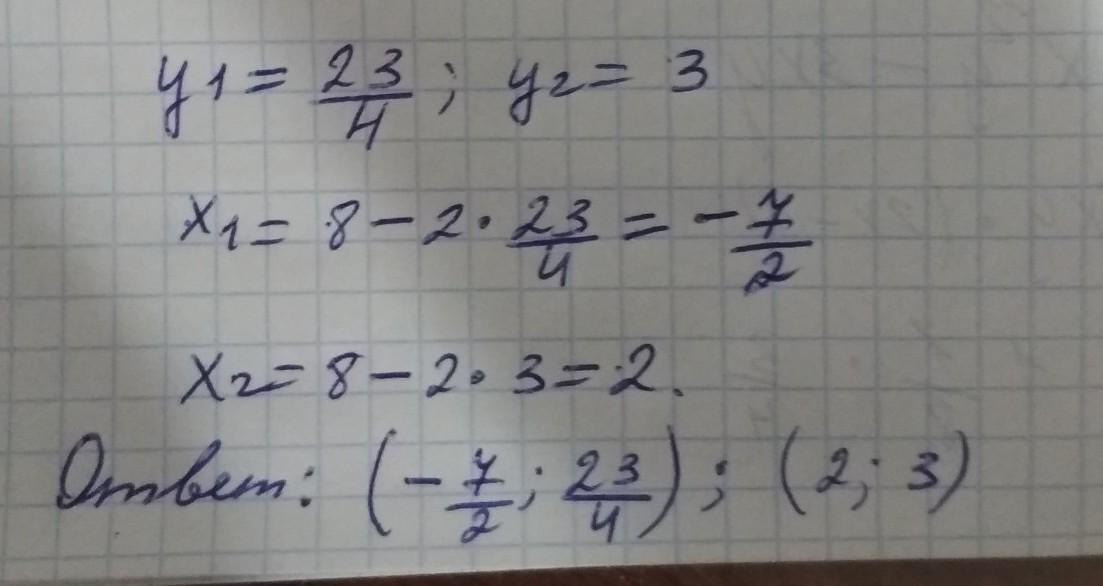 y₁ = 23/4; y₂ = 3
x₁ = 8 − 2 · 23/4 = −7/2
x₂ = 8 − 2 · 3 = 2.
Ответ: (−7/2; 23/4); (2; 3)